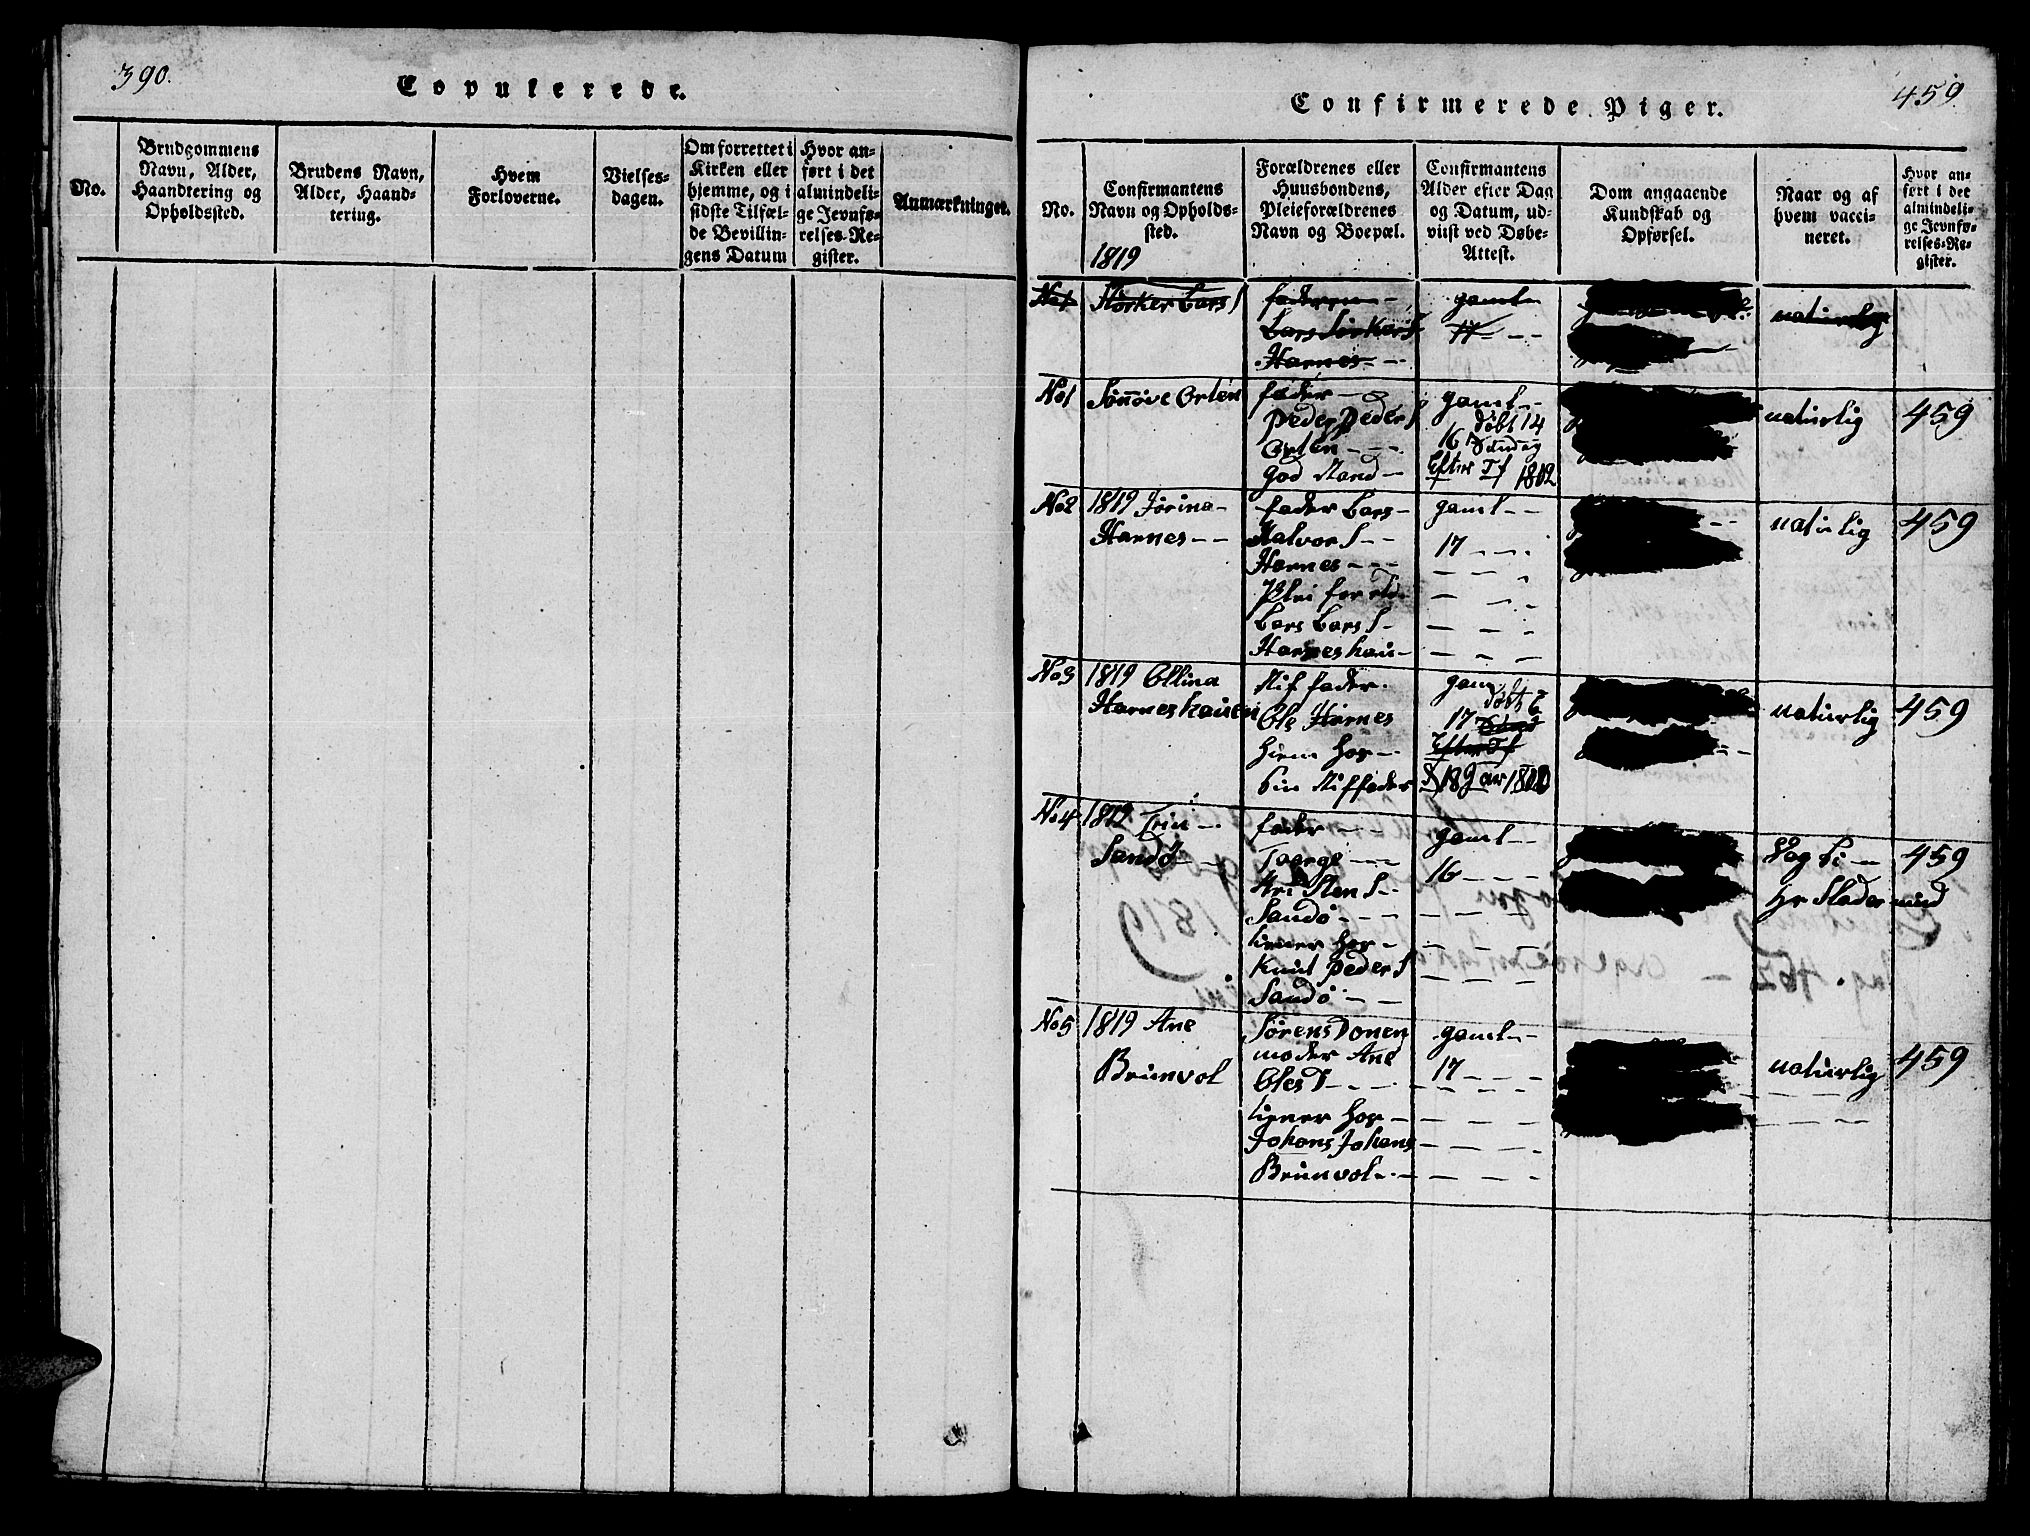 390.
Copulerede.
No.
Brudgommens
Navn, Alder,
Haandtering og
Opholdssted.
Brudens Navn,
Alder, Haand-
tering.
Hvem
Forloverne.
Vielses-
dagen.
Om forrettet i
Kirken eller
hjemme, og i
sidste Tilfæl-
de Bevillin-
gens Datum
Hvor an-
ført i det
almindeli-
ge Jevnfø-
relses-Re-
gister.
Anmærkninger.
459
Confirmerede Piger.
No.
Confirmantens
Navn og Opholds-
sted.
1819
Forældrenes eller
Huusbondens,
Pleieforældrenes
Navn og Boepæl.
Confirmantens
Alder efter Dag
og Datum, ud-
viist ved Døbe-
Attest.
Dom angaaende
Kundskab og
Opførsel.
Naar og af
hvem vacci-
neret.
Hvor an-
ført i det
almindeli-
ge Jevnfø-
relses-Re-
gister.
No1
Størker Lars S
faderen
Lars Størkers
Harnes
gaml
17
naturlig
No1
Sønøve Orten
fader
Peder Peder S
Orten
god Mand
gaml
døbt 14
16 Søndag
Efter Tf 1802
naturlig
459
No2
1819 Jørina
Harnes
fader Lars
Halvor S
Harnes
Plei forældr
Lars Lars S
Harneshau
gaml
17
naturlig
459
No3
1819 Ollina
Harneshauen
Stif fader
Ole Harnes
hiem hos
sin Stiffader
gam
døbt 6
17
Efter Tf
18 Jar 1800
naturlig
459
No4
1819 Trin
Sandø
fader
Taarge
Kristen S
Sandø
tiener hos
Knut Peder S
Sandø
gaml
16
Vag ti
Hr Stadermind
459
No5
1819 Ane
Brunvol
Sørens Donen
moder Ane
Oles D
tiener hos
Johans Johans
Brunvol
gaml
17
naturlig
459